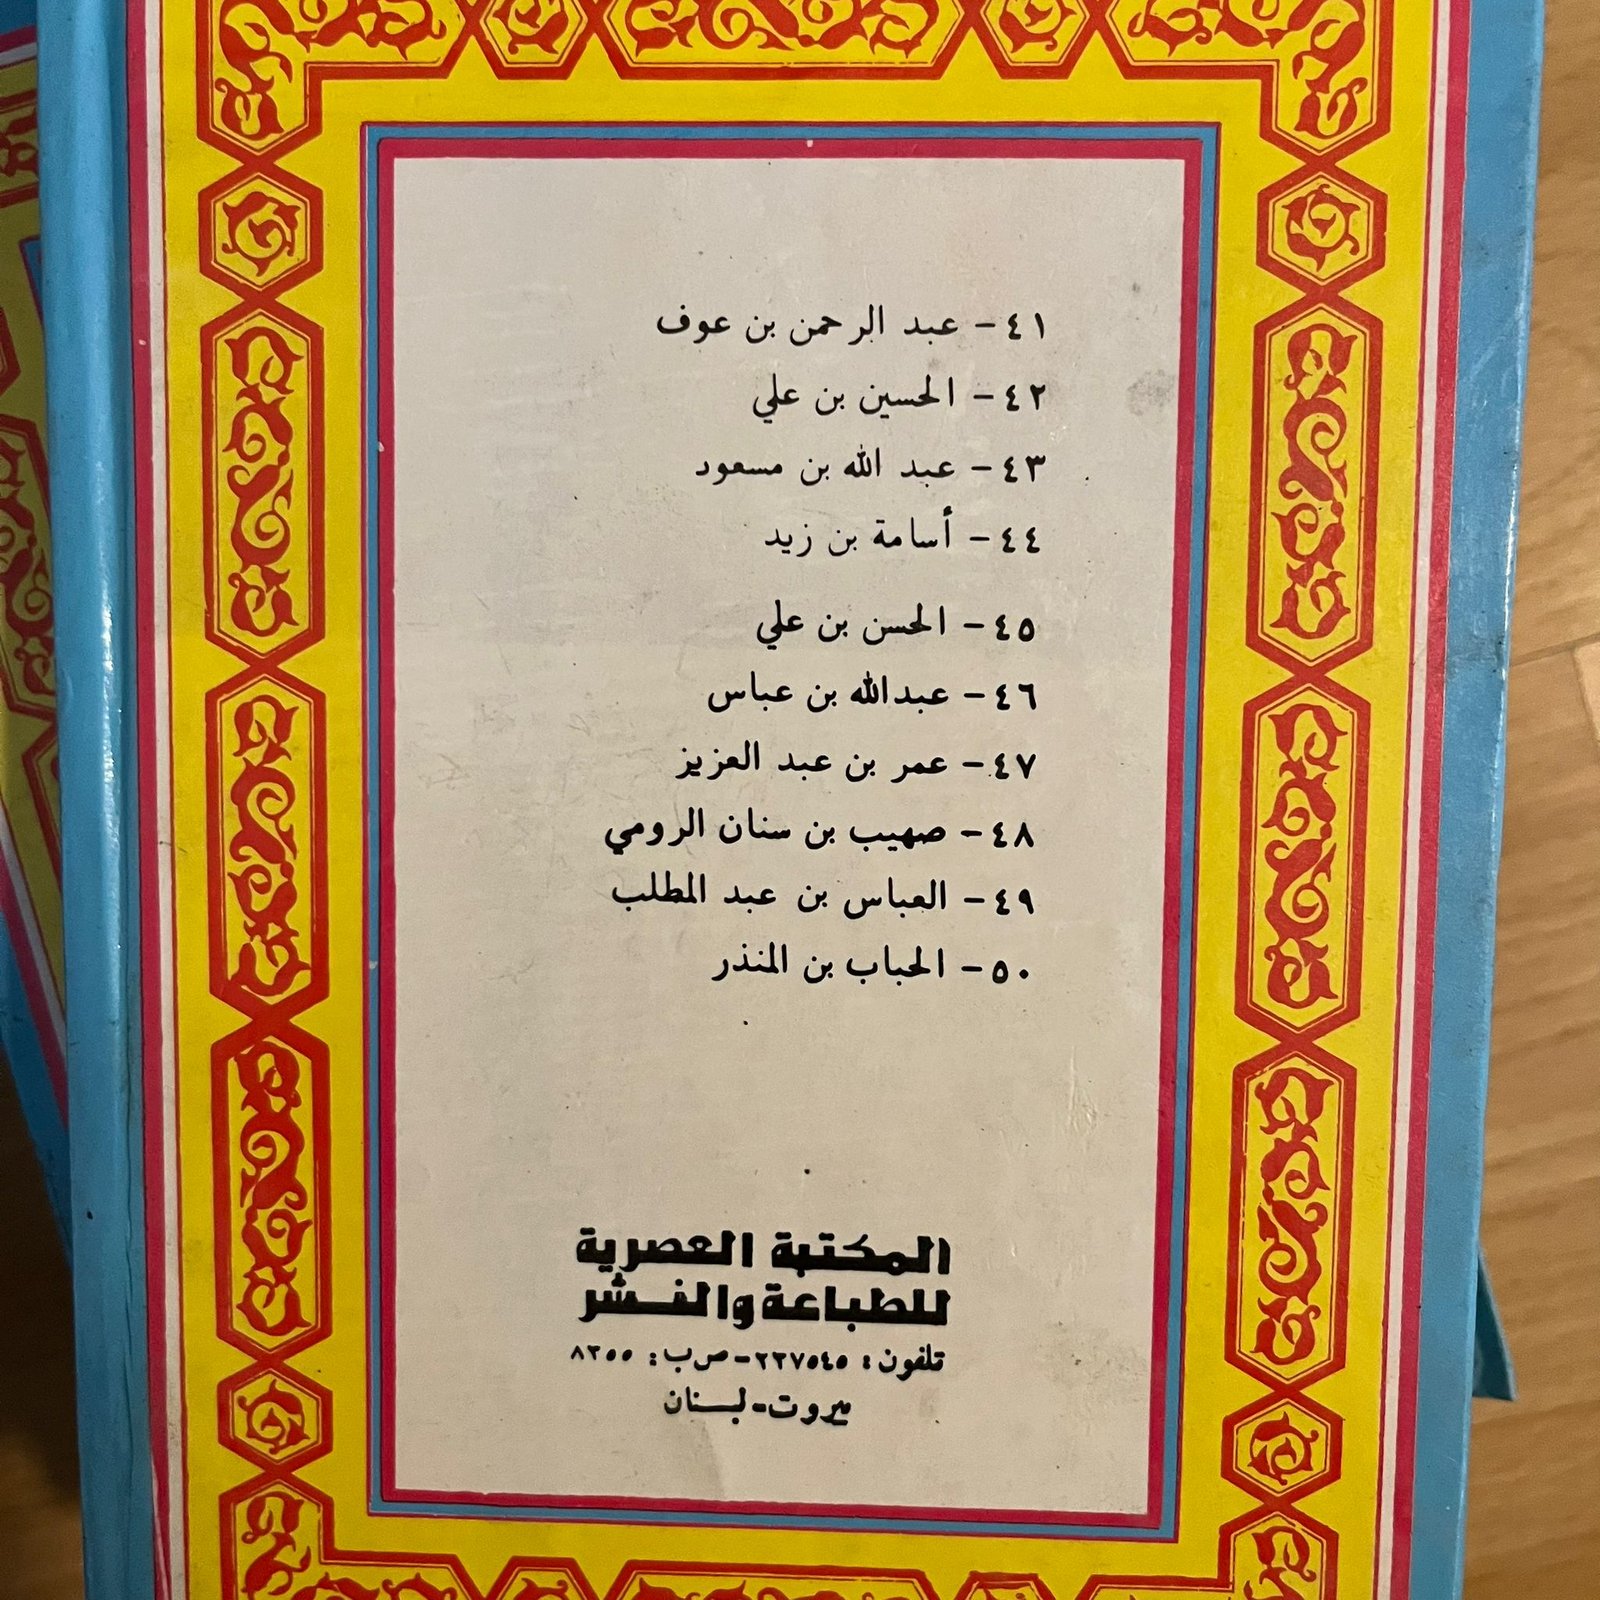 ٤١ - عبد الرحمن بن عوف
٤٢ - الحسين بن علي
٤٣ - عبد الله بن مسعود
٤٤ - أسامة بن زيد
٤٥ - الحسن بن علي
٤٦ - عبدالله بن عباس
٤٧ - عمر بن عبد العزيز
٤٨ - صهيب بن سنان الرومي
٤٩ - العباس بن عبد المطلب
٥٠ - الحباب بن المنذر
المكتبة العصرية
للطباعة والنشر
تلفون: ٢٣٧٥٤٥ - ص ب: ٨٣٥٥
بيروت - لبنان